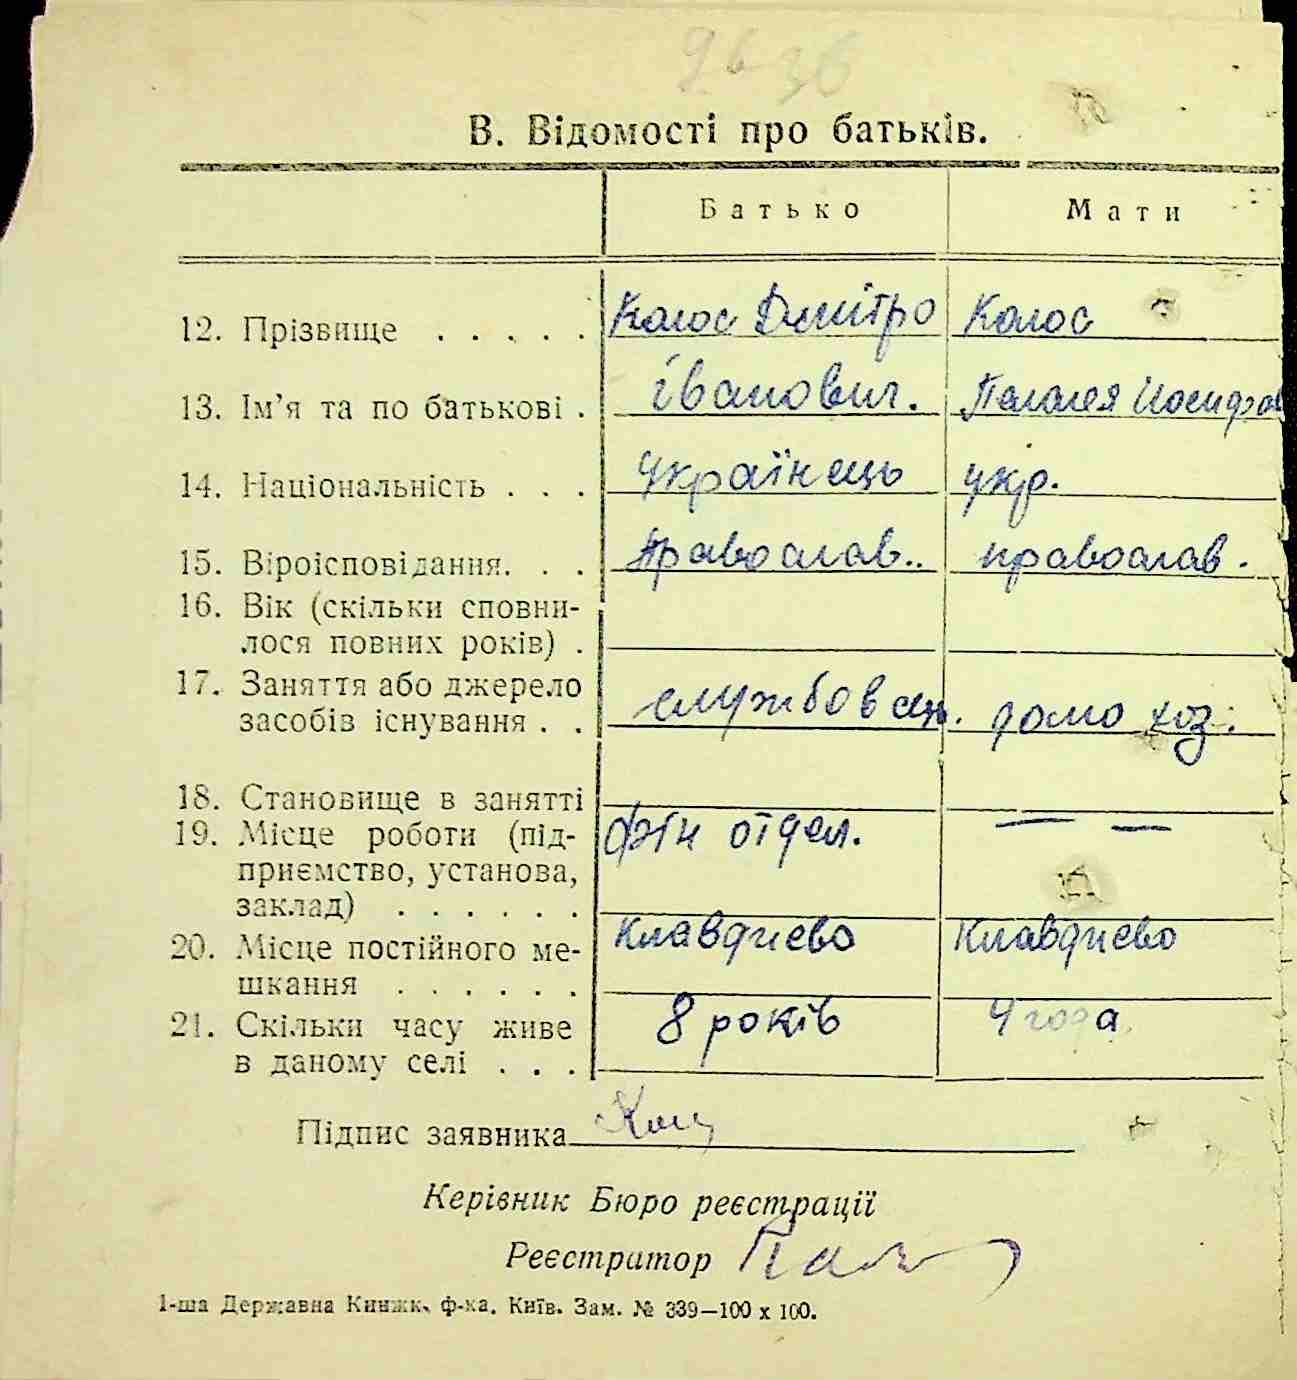 В. Відомості про батьків.
Батько Мати
12. Прізвище . . . . . Колос Дмітро Колос
13. Ім’я та по батькові . івanович. Пелагея Иосифов
14. Національність . . . українець укр.
15. Віроісповідання. . . православ.. православ.
16. Вік (скільки сповни-
лося повних років) .
17. Заняття або джерело
засобів існування . . службовець. домо хоз.
18. Становище в занятті
19. Місце роботи (під- фін отдел. — —
приємство, установа,
заклад) . . . . . .
20. Місце постійного ме- Клавдиево Клавдиево
шкання . . . . . .
21. Скільки часу живе 8 років 4 года
в даному селі . . .
Підпис заявника
Керівник Бюро реєстрації
Реєстратор
1-ша Державна Книжк. ф-ка. Київ. Зам. № 339—100 х 100.